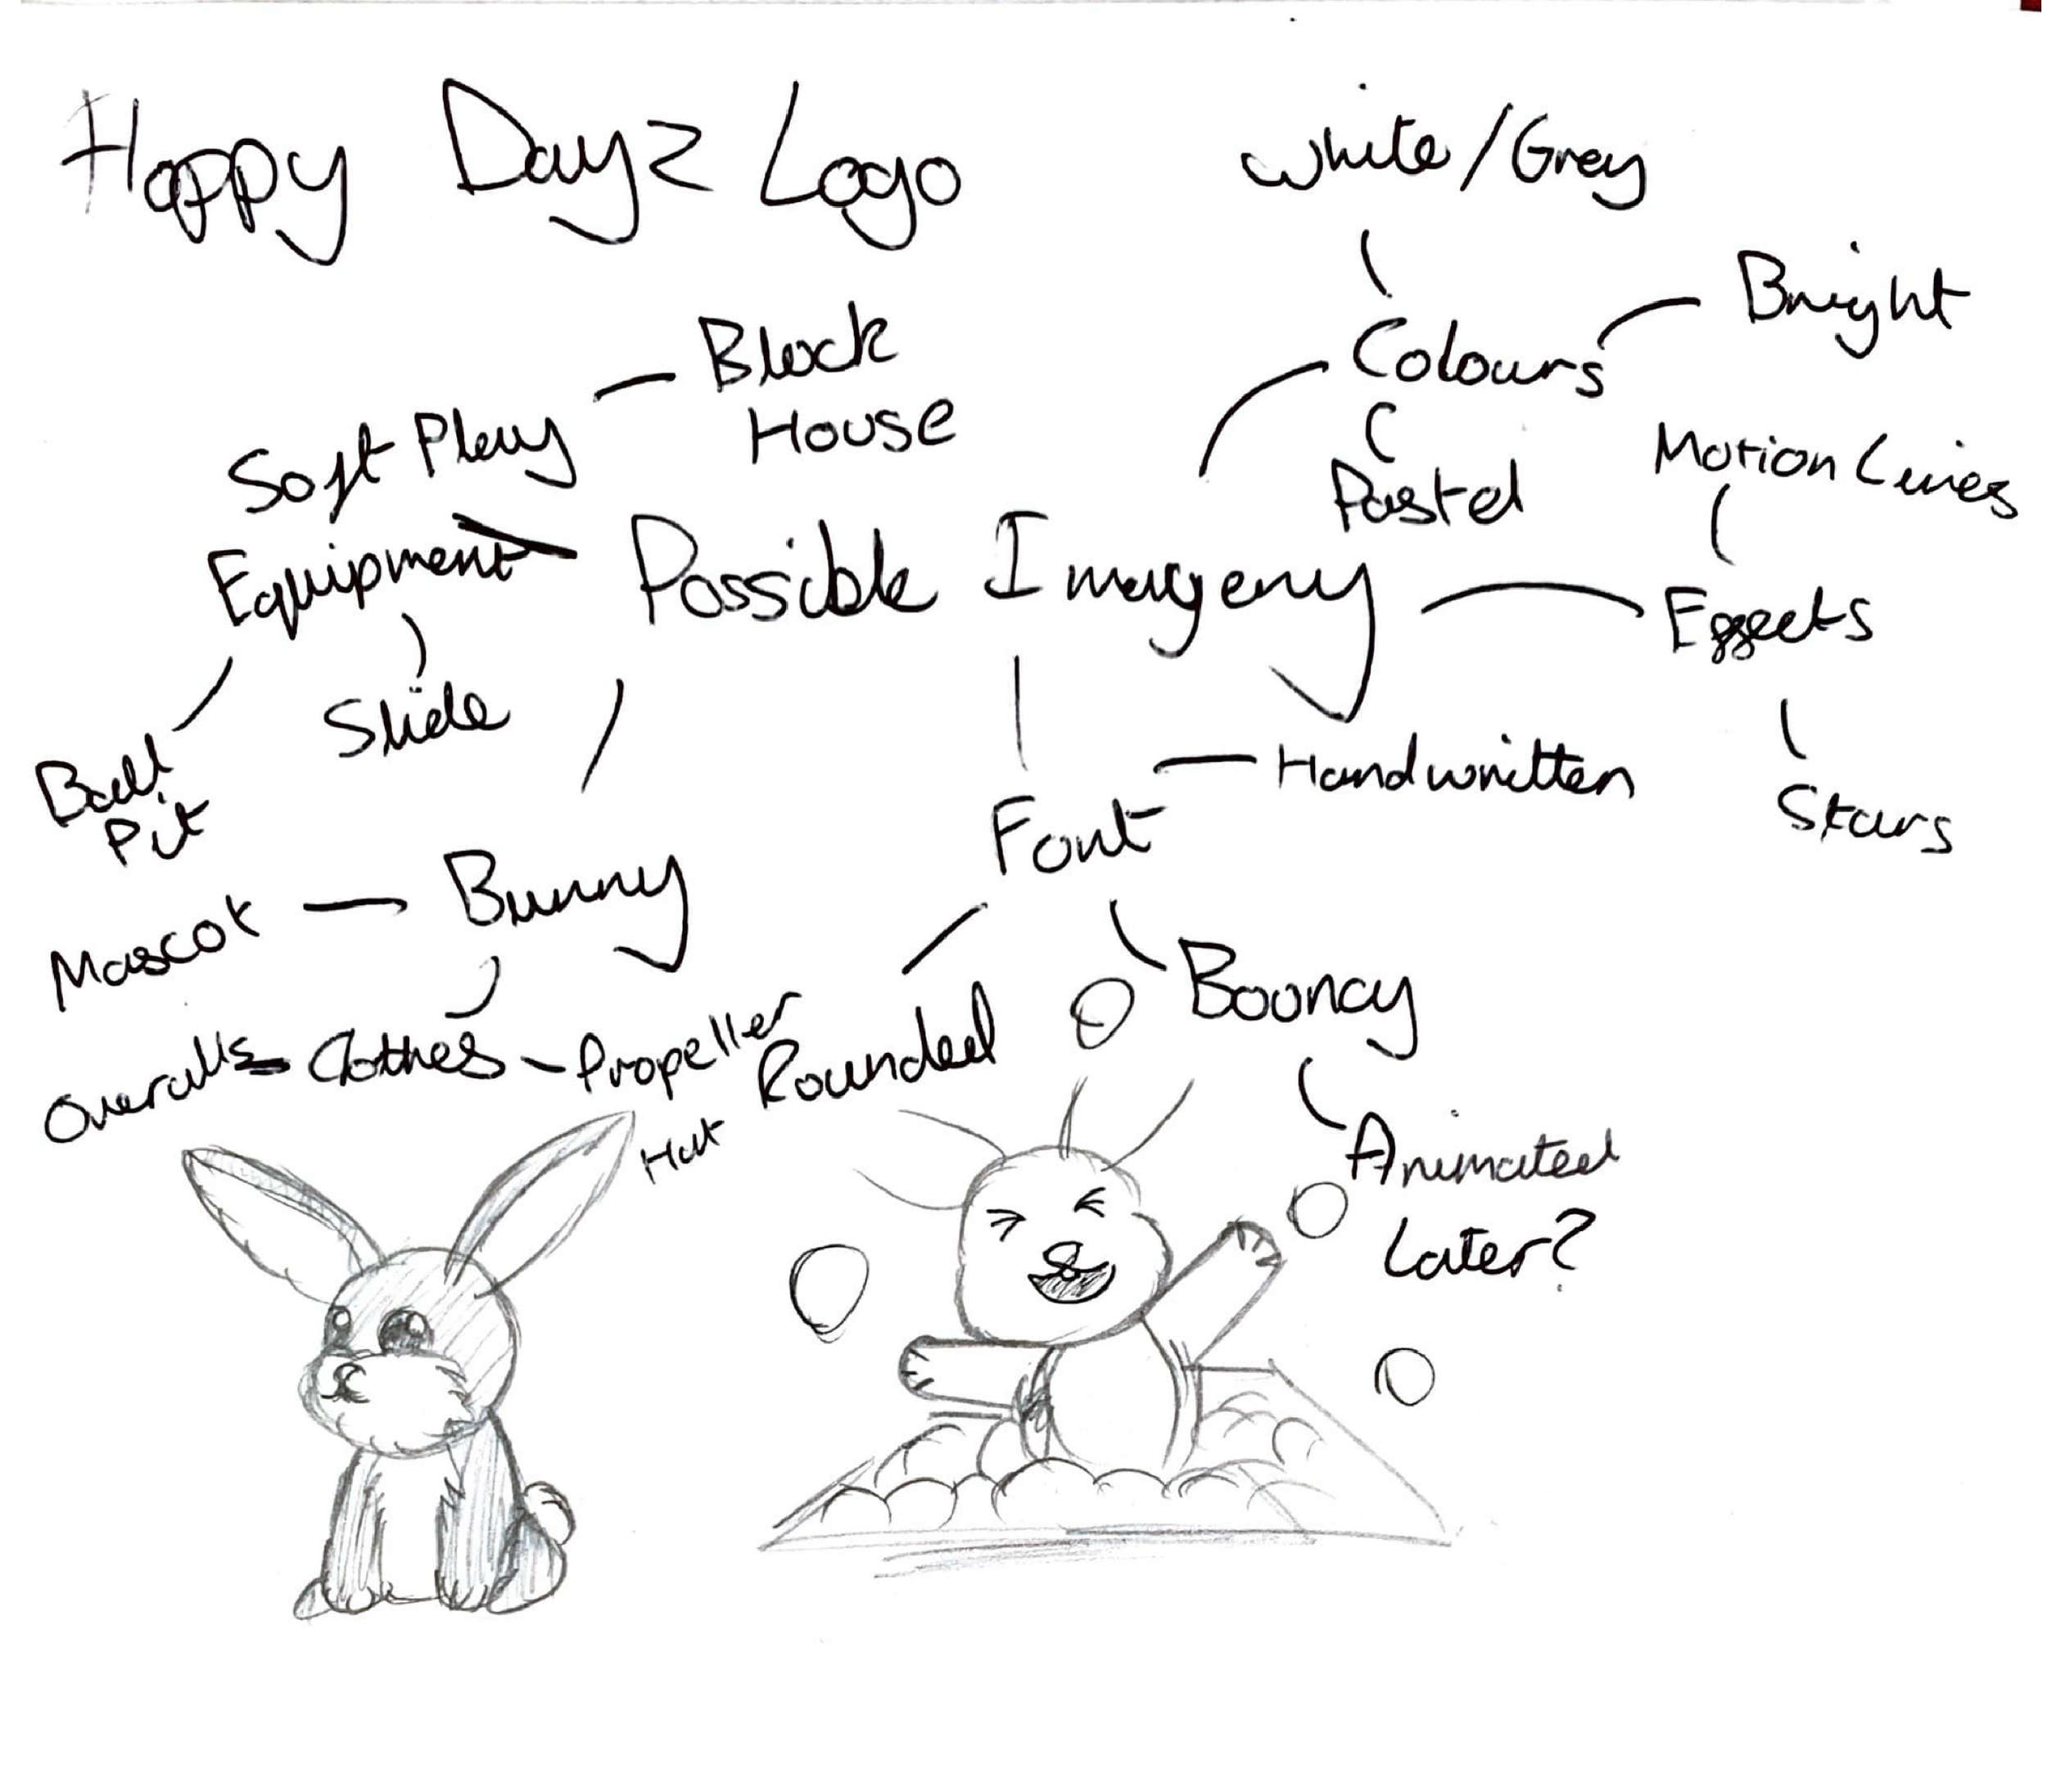 Happy Dayz Logo
White/Grey
Colours
Bright
Pastel
Block
House
Soft Play
Equipment
Possible Imagery
Motion Lines
Effects
Stars
Slide
Ball
Pit
Font
Handwritten
Mascot
Bunny
Overalls
Clothes
Propeller
Hat
Rounded
Booncy
Animated
Later?